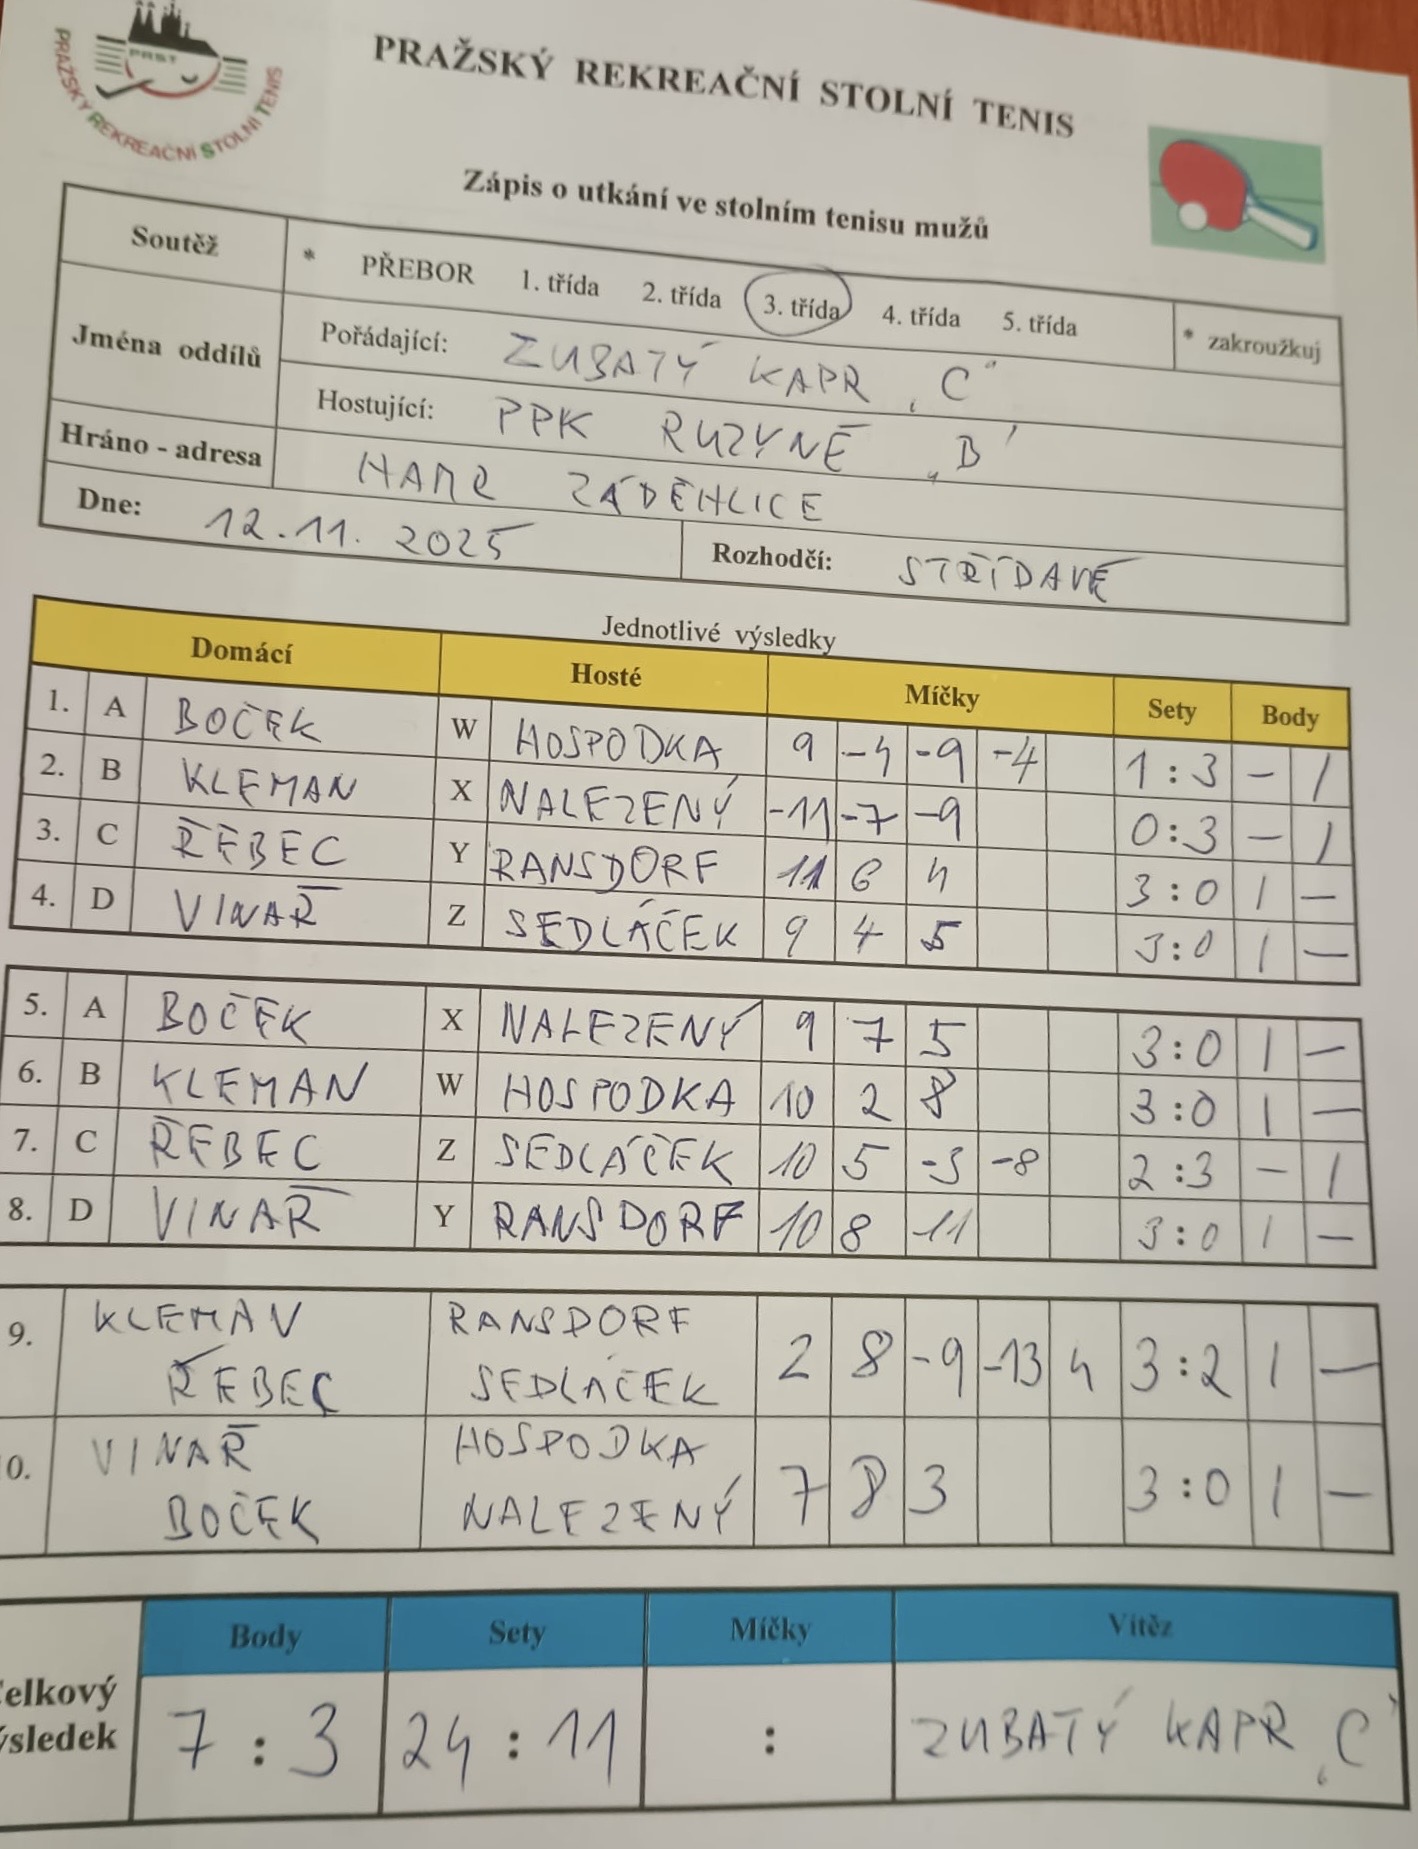 PRST
PRAŽSKÝ REKREAČNÍ STOLNÍ TENIS
PRAŽSKÝ REKREAČNÍ STOLNÍ TENIS
Zápis o utkání ve stolním tenisu mužů
Soutěž * PŘEBOR 1. třída 2. třída 3. třída 4. třída 5. třída * zakroužkuj
Jména oddílů Pořádající: ZUBATÝ KAPR „C"
Hostující: PPK RUZYNĚ „B"
Hráno - adresa HAMR ZÁDĚHLICE
Dne: 12.11. 2025 Rozhodčí: STŘÍDAVĚ
Jednotlivé výsledky
Domácí Hosté Míčky Sety Body
1. A BOČEK W HOSPODKA 9 -4 -9 -4 1:3 - 1
2. B KLEMAN X NALEZENÝ -11 -7 -9 0:3 - 1
3. C ŘEBEC Y RANSDORF 11 6 4 3:0 1 -
4. D VINAŘ Z SEDLÁČEK 9 4 5 3:0 1 -
5. A BOČEK X NALEZENÝ 9 7 5 3:0 1 -
6. B KLEMAN W HOSPODKA 10 2 8 3:0 1 -
7. C ŘEBEC Z SEDLÁČEK 10 5 -3 -8 2:3 - 1
8. D VINAŘ Y RANSDORF 10 8 11 3:0 1 -
9. KLEMAN RANSDORF 2 8 -9 -13 4 3:2 1 -
ŘEBEC SEDLÁČEK
0. VINAŘ HOSPODKA 7 8 3 3:0 1 -
BOČEK NALEZENÝ
Body Sety Míčky Vítěz
elkový
ýsledek 7:3 24:11 : ZUBATÝ KAPR „C"